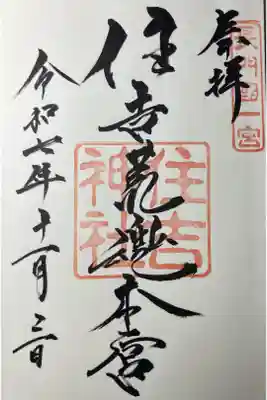 長門国一宮
奉拝
住吉荒魂本宮
住吉神社
令和七年十一月二日